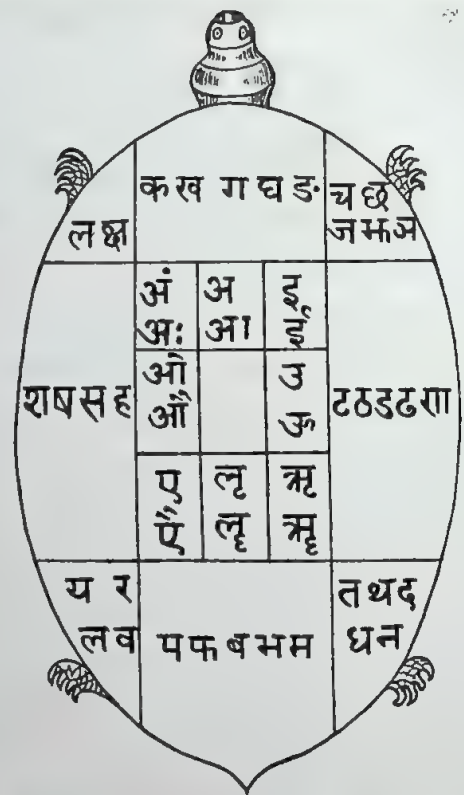 ल क्ष
क ख ग घ ङ
च छ
ज झ ञ
अं
अः
अ
आ
इ
ई
श ष स ह
ओ
औ
उ
ऊ
ट ठ ड ढ ण
ए
ऐ
ऌ
ॡ
ऋ
ॠ
य र
ल व
प फ ब भ म
त थ द
ध न